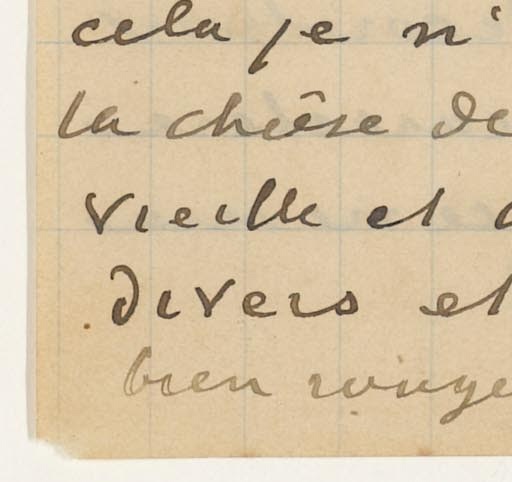 cela je n'
la chôse de
vieille et
divers et
bien rouge